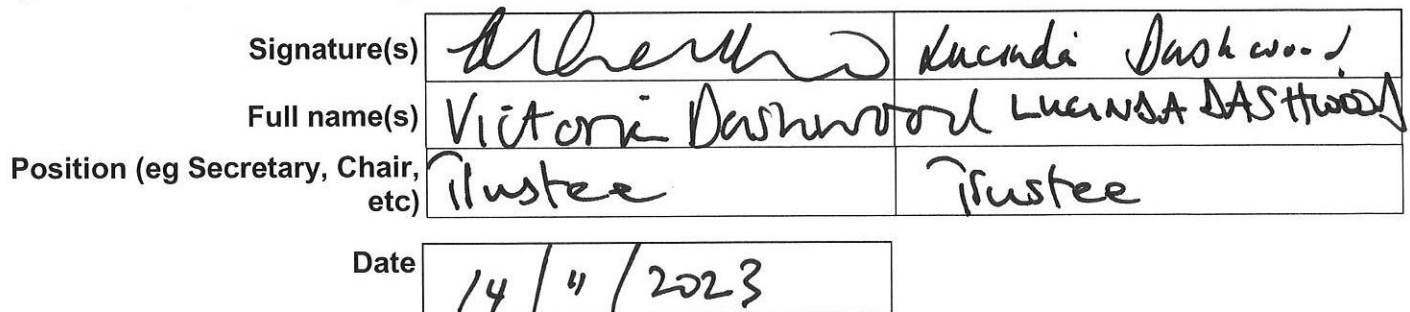 Signature(s) Lucinda Dashwood
Full name(s) Victoria Dashwood LUCINDA DASHWOOD
Position (eg Secretary, Chair,
etc) Trustee Trustee
Date 14/11/2023